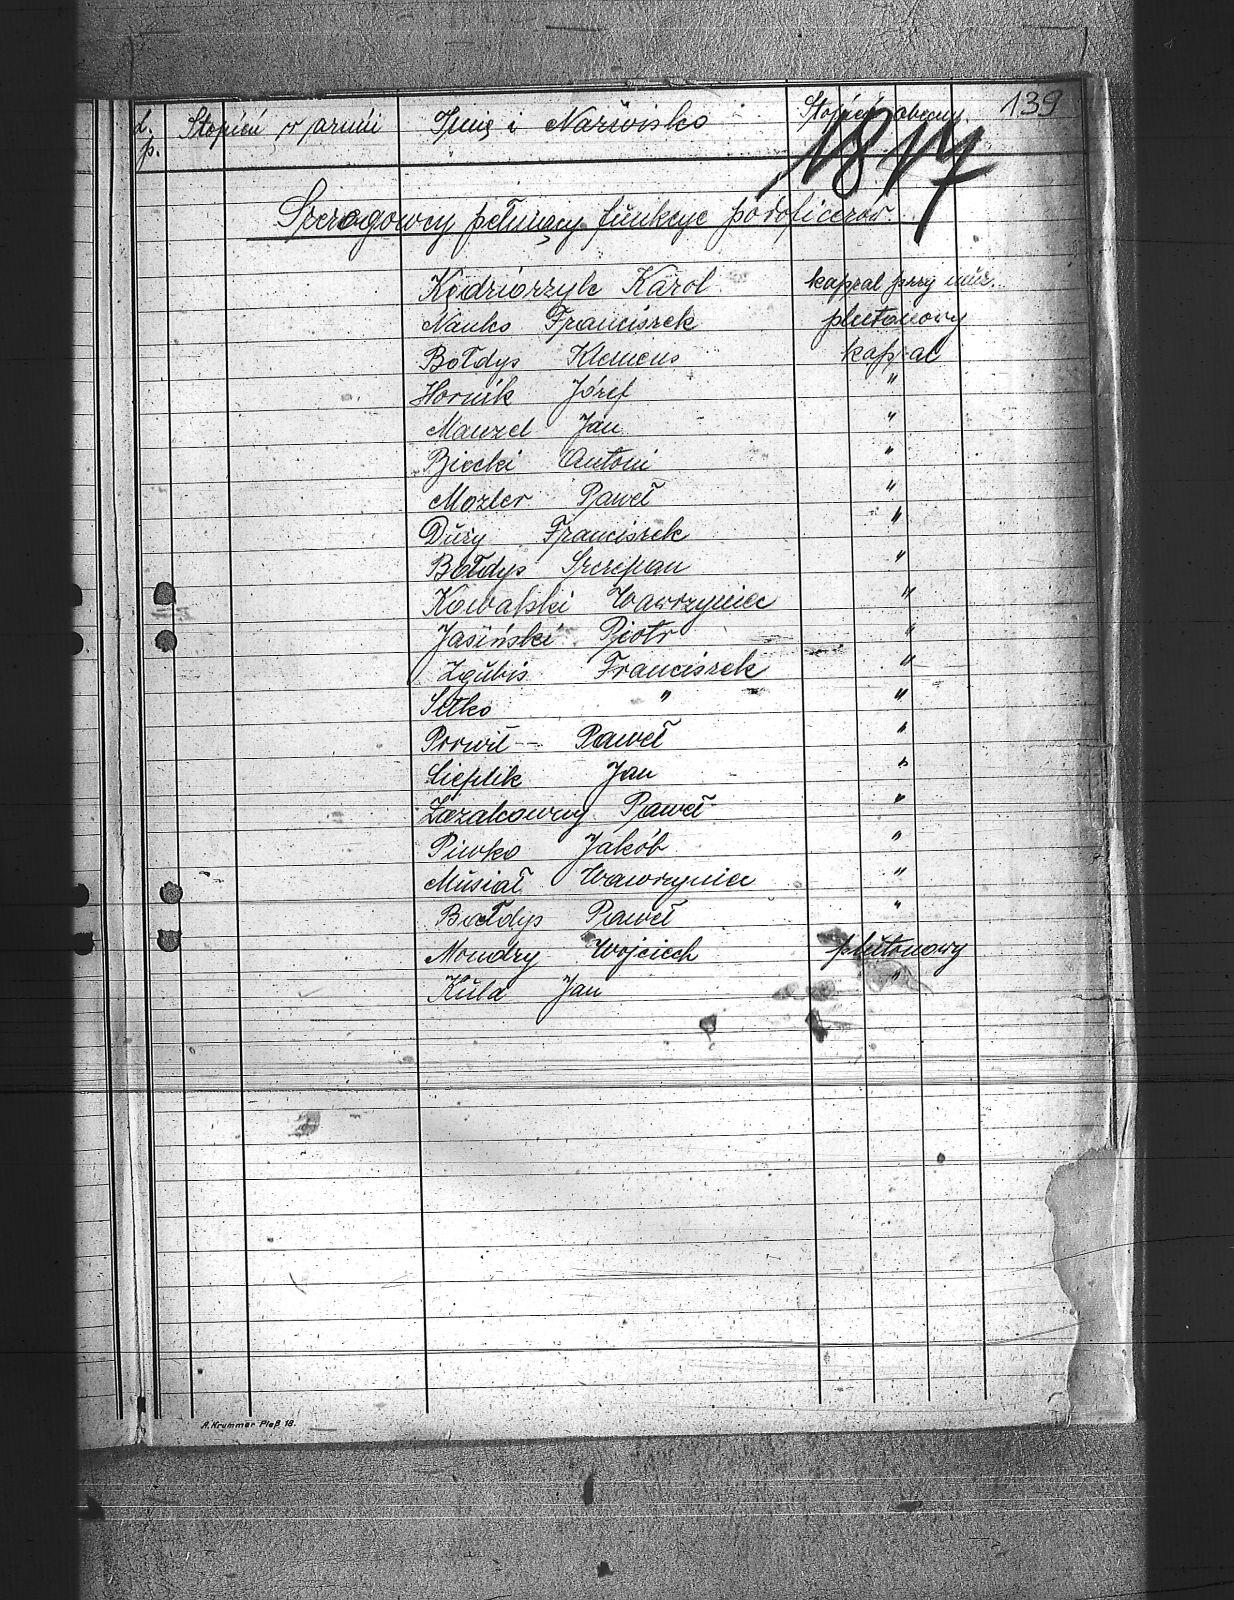 139
L. p. Stopień w armii Imię i Nazwisko Stopień obecny.
1817
Szeregowcy pełniący funkcye podoficerów.
Kędziorzyk Karol kapral przy
Nanko Franciszek plutonowy
Bołdys Klemens kapral
Hornik Józef "
Manzel Jan "
Biecki Antoni "
Mozler Paweł "
Duży Franciszek "
Bołdys Szczepan "
Kowalski Wawrzyniec "
Jasiński Piotr "
Zgubis Franciszek "
Sitko " "
Porwit Paweł "
Cieplik Jan "
Paweł "
Piwko Jakób "
Musiał Wawrzyniec "
Bołdys Paweł "
Mondry Wojciech plutonowy
Kula Jan "
A. Krummer Pleß 18.